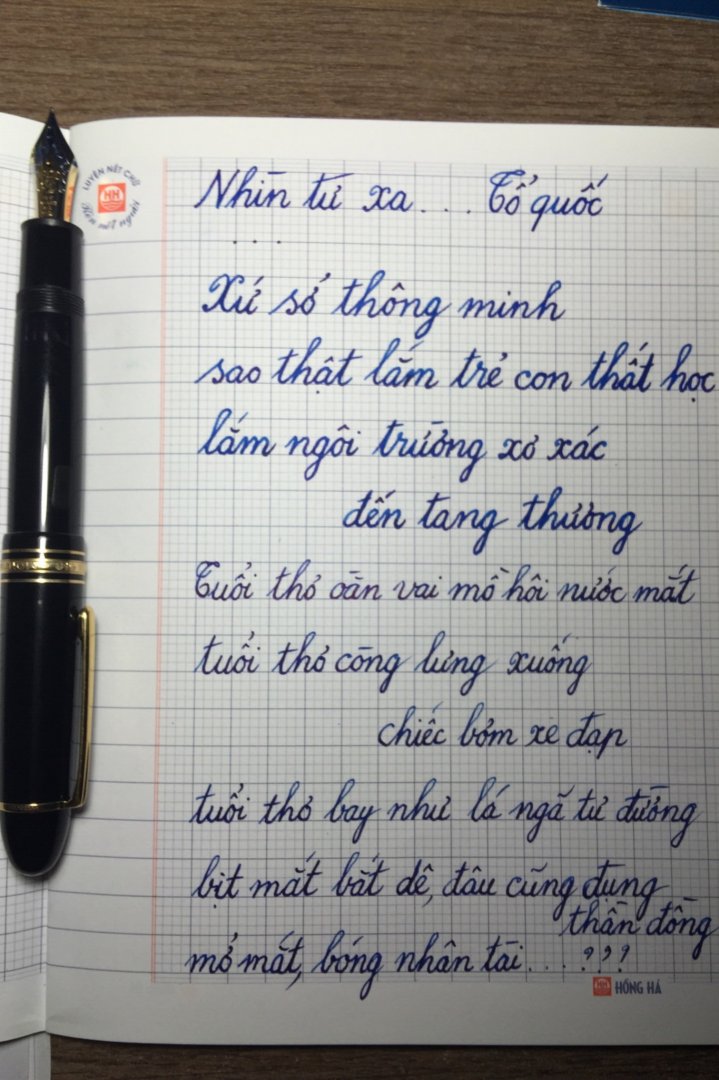 LUYỆN NÉT CHỮ
Rèn nết người
HH
Nhìn từ xa.... Tổ quốc
...
Xứ sở thông minh
sao thật lắm trẻ con thất học
lắm ngôi trường xơ xác
đến tang thương
Tuổi thơ oằn vai mồ hôi nước mắt
tuổi thơ còng lưng xuống
chiếc bơm xe đạp
tuổi thơ bay như lá ngã tư đường
bịt mắt bắt dê, đâu cũng đụng
thần đồng
mở mắt, bóng nhân tài....???
HH HỒNG HÀ